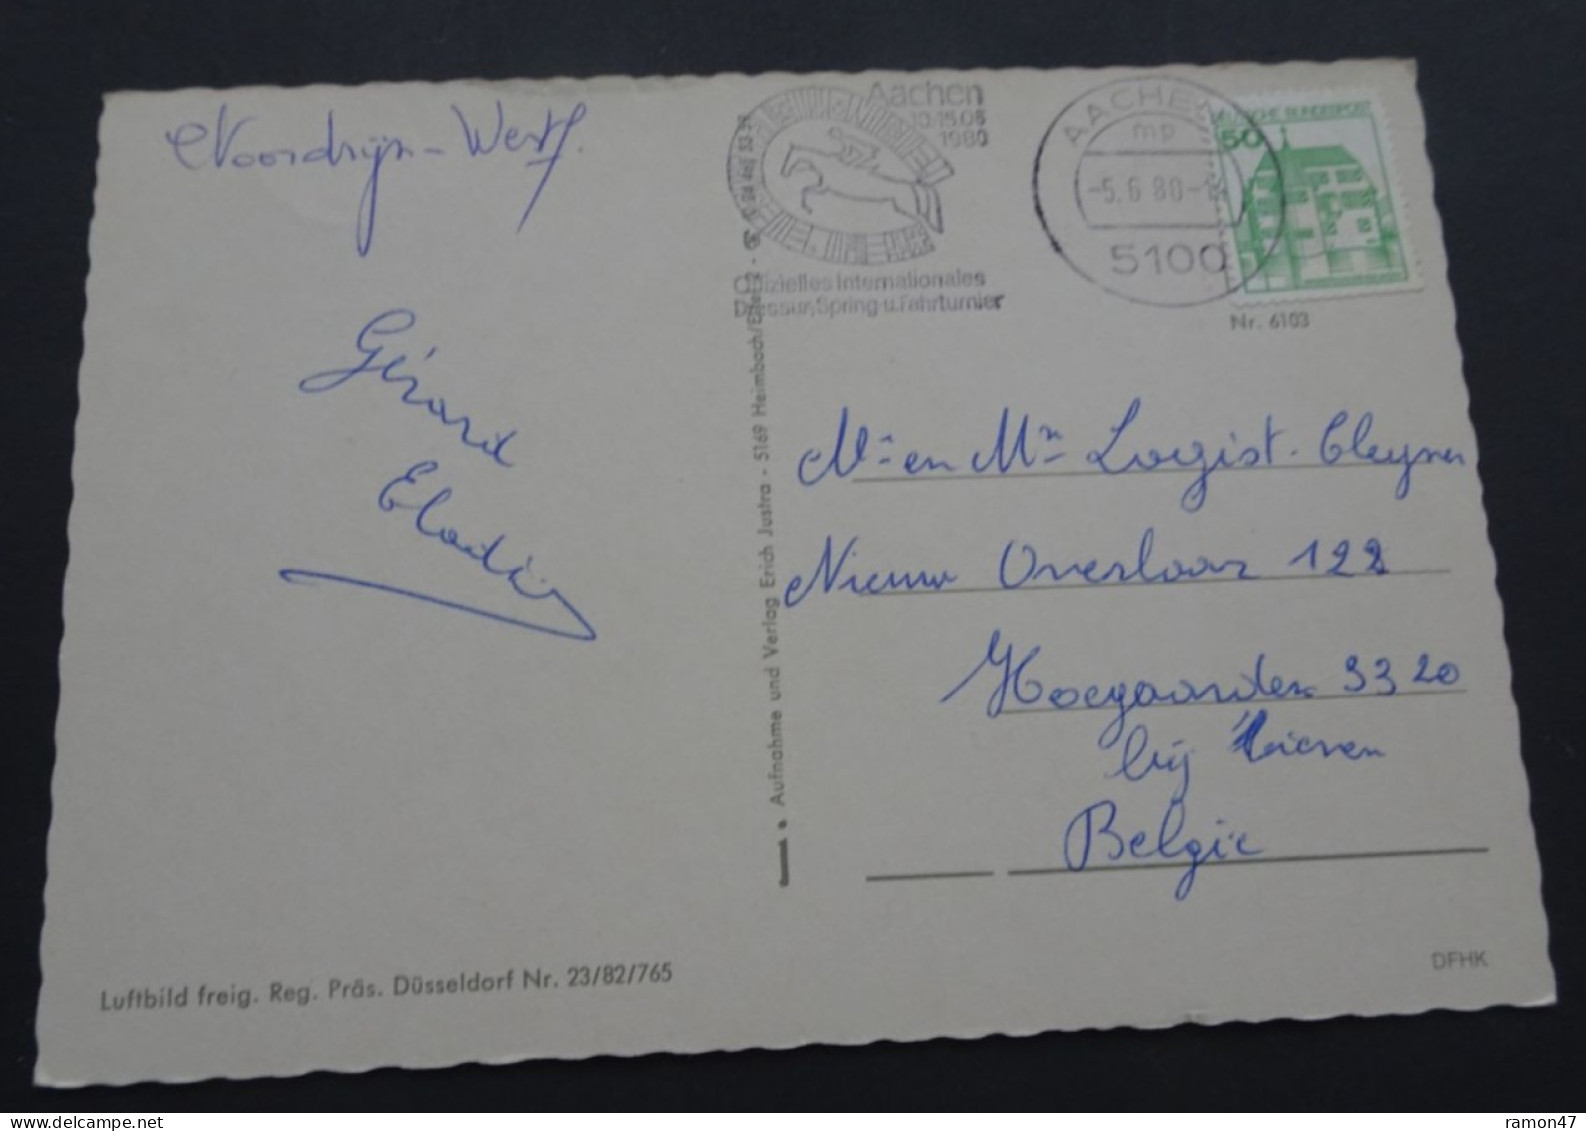 Noordrijn-Westf.
Gérard
Eladi
Aachen
10-15.06
1980
Offizielles Internationales
Dressur, Spring-u. Fahrturnier
AACHEN
mp
-5.6.80-
5100
DEUTSCHE BUNDESPOST
50
Nr. 6103
Mr en Mn Logist. Cleynen
Nieuw Overlaar 122
Hoegaarden 3320
bij Tienen
Belgie
Aufnahme und Verlag Erich Justra - 5169 Heimbach/Eifel
Luftbild freig. Reg. Präs. Düsseldorf Nr. 23/82/765
DFHK
ramon47